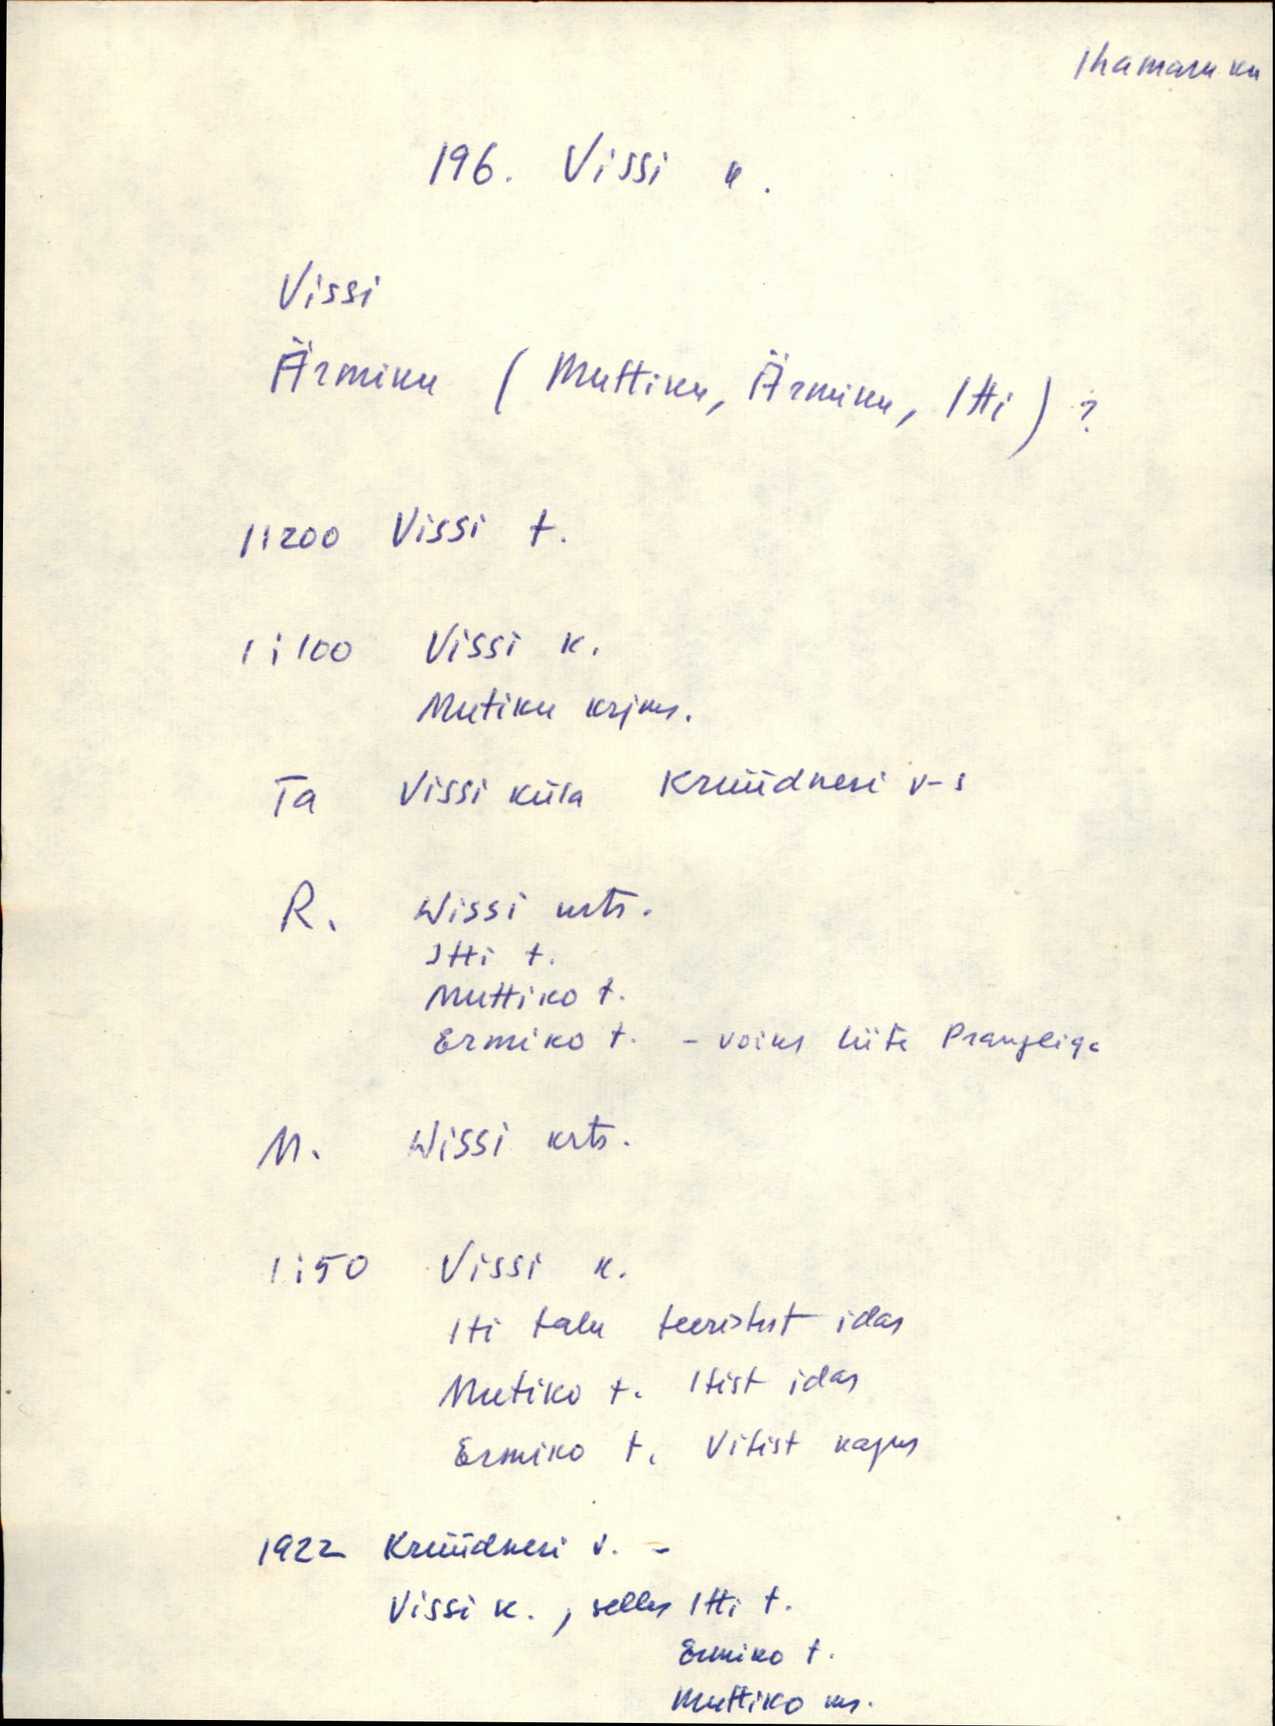 Ihamaru kn
196. Vissi k.
Vissi
Ärmiku (Muttiku, Ärmiku, Itti) ?
1:200 Vissi t.
1:100 Vissi k.
Mutiku krjms.
Ta Vissi küla Krüüdneri v-s
R. Wissi krts.
Itti t.
Muttiko t.
Ermiko t. - võiks liita Prangliga
M. Wissi krts.
1:50 Vissi k.
Iti talu teeristist idas
Mutiko t. Itist idas
Ermiko t. Vitist kagus
1922 Krüüdneri v. -
Vissi k., selles Itti t.
Ermiko t.
Muttiko ms.